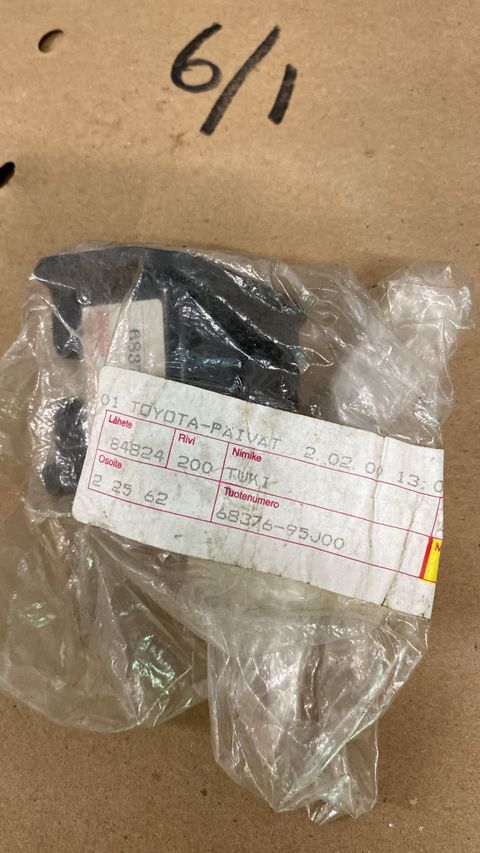 6/1
689
01 TOYOTA-PÄIVÄT 2.02.00 13:0
Lähete Rivi Nimike
84824 200 TUKI
Osoite Tuotenumero
2 25 62 68376-95J00